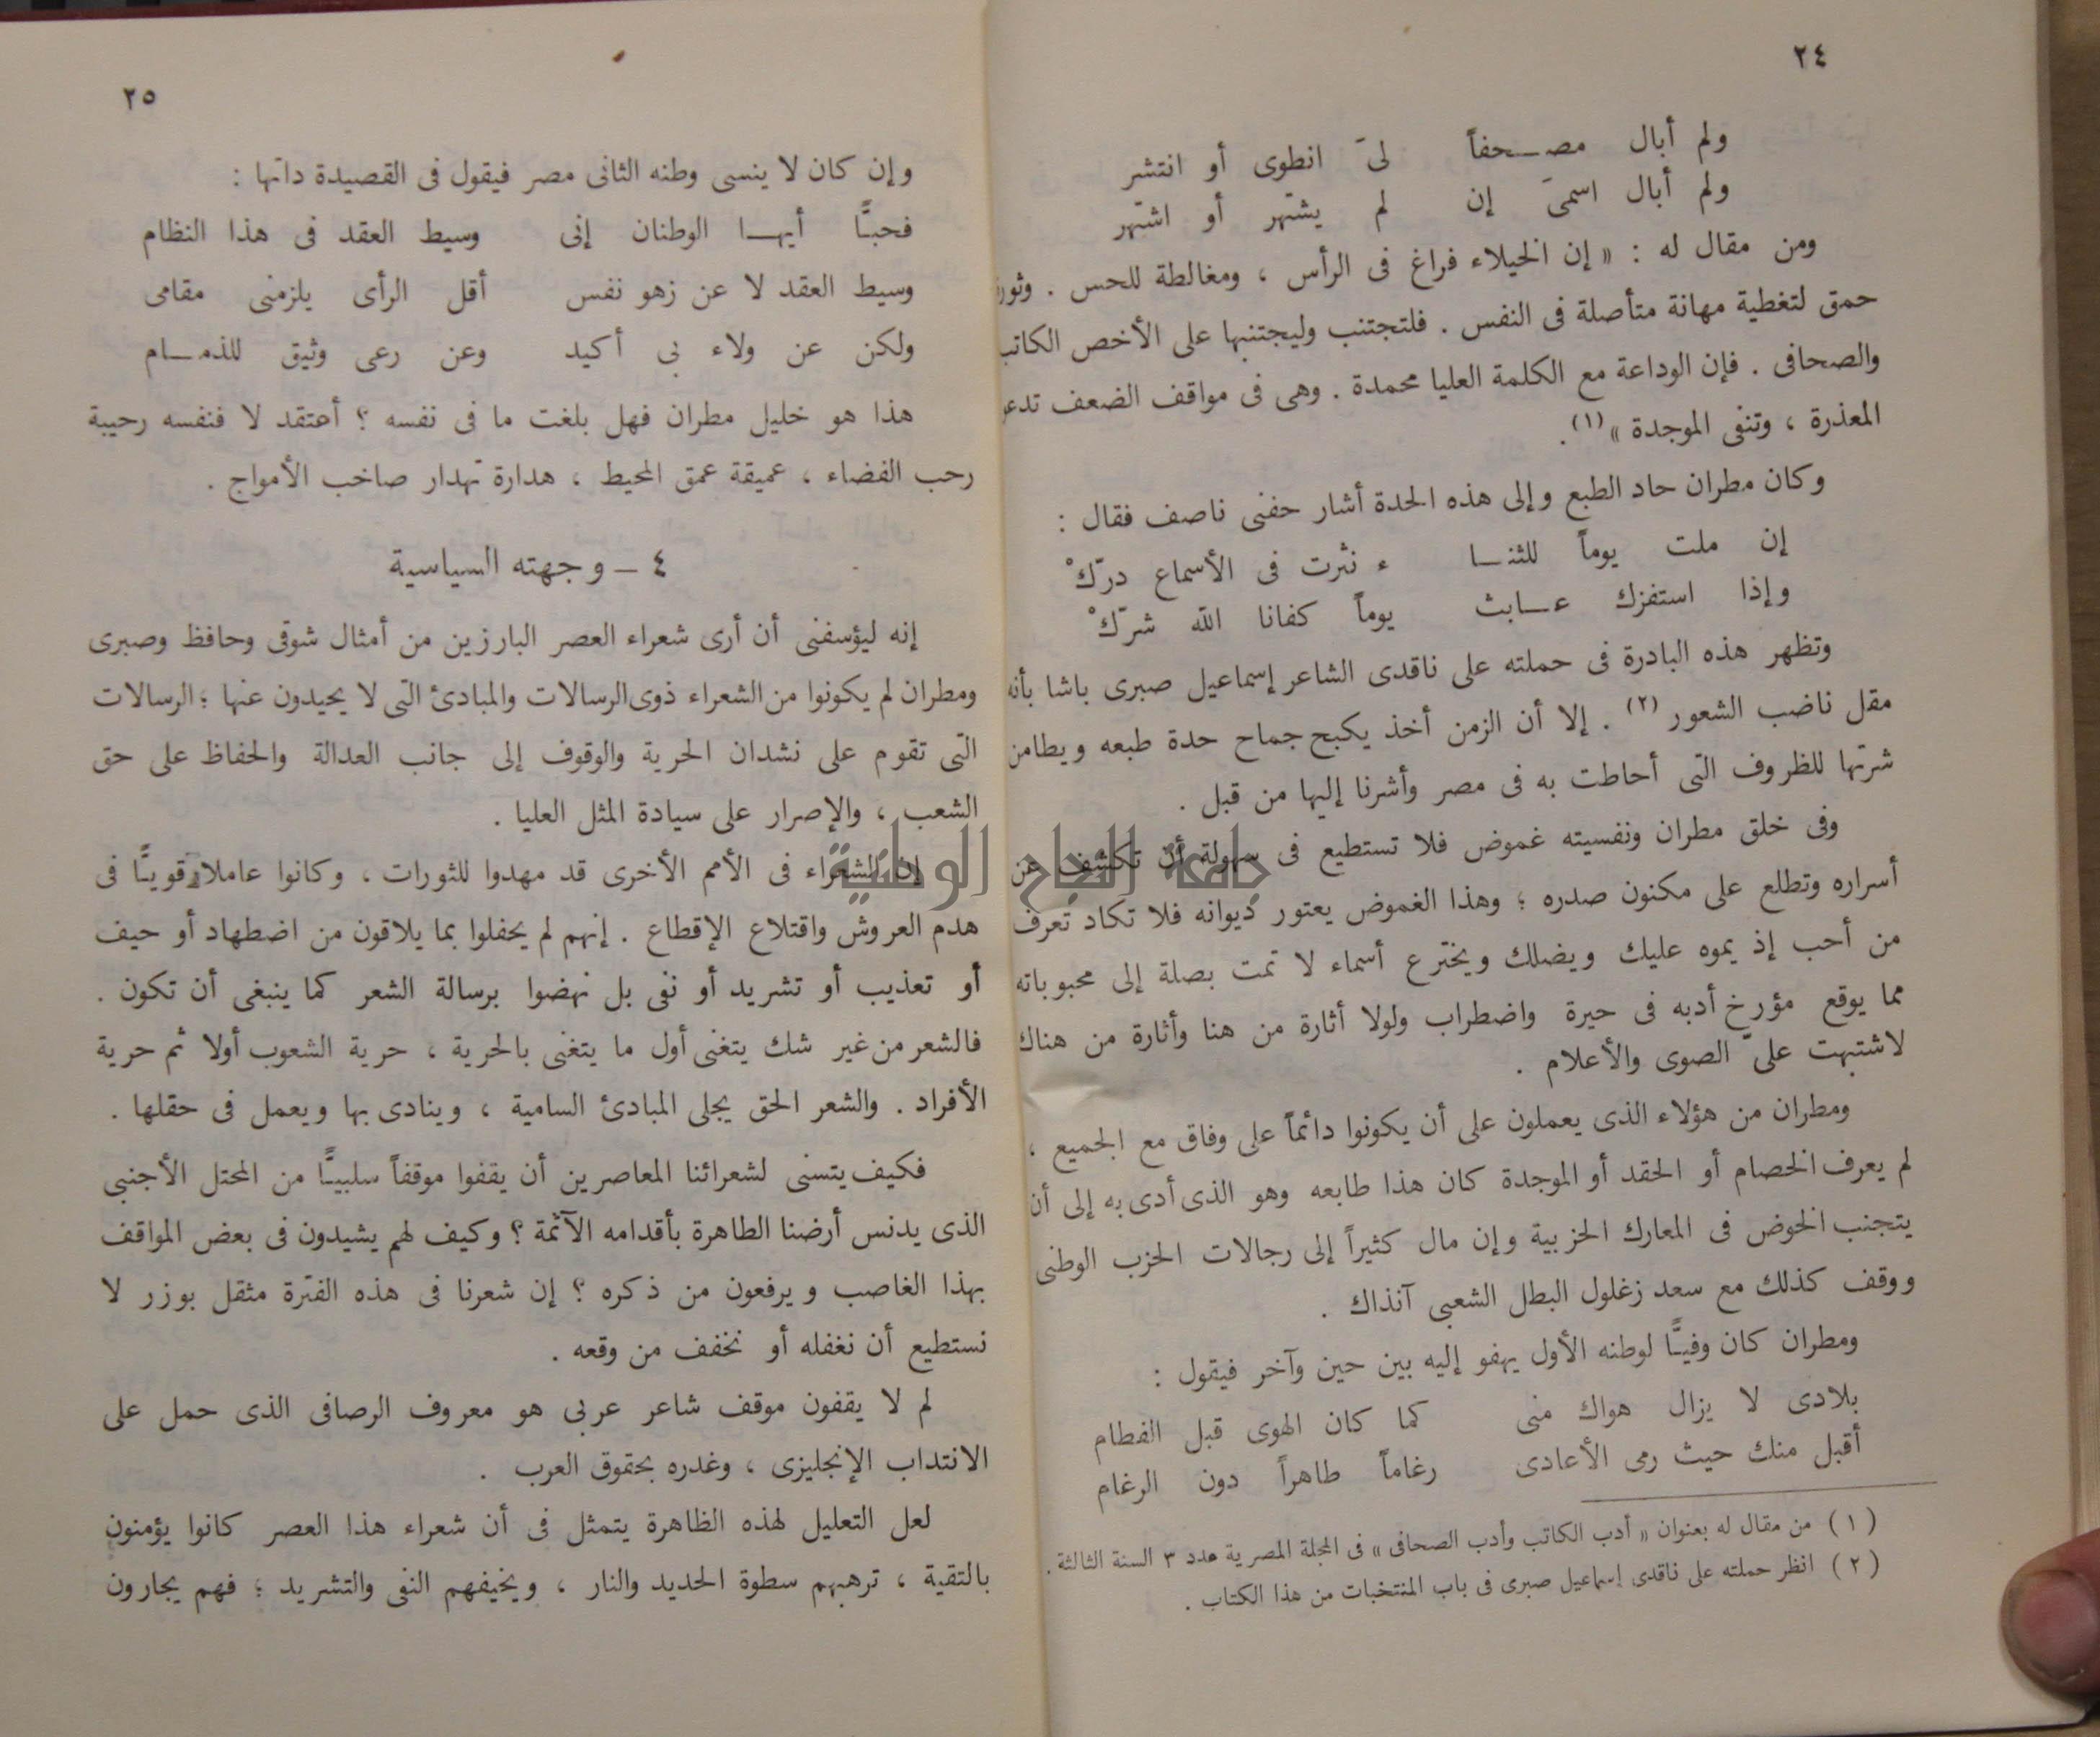 ٢٤
ولم أبال مصحفاً لىَ انطوى أو انتشر
ولم أبال اسمىَ إن لم يشتهر أو اشتهر
ومن مقال له : « إن الخيلاء فراغ فى الرأس ، ومغالطة للحس . وثورة
حمق لتغطية مهانة متأصلة فى النفس . فلتجتنب وليجتنبها على الأخص الكاتب
والصحافى . فإن الوداعة مع الكلمة العليا محمدة . وهى فى مواقف الضعف تدعو
المعذرة ، وتنفى الموجدة » (١) .
وكان مطران حاد الطبع وإلى هذه الحدة أشار حفنى ناصف فقال :
إن ملت يوماً للثنا ء نثرت فى الأسماع درّكْ
وإذا استفزك عابث يوماً كفانا الله شرّكْ
وتظهر هذه البادرة فى حملته على ناقدى الشاعر إسماعيل صبرى باشا بأنه
مقل ناضب الشعور (٢) . إلا أن الزمن أخذ يكبح جماح حدة طبعه ويطامن
شرتها للظروف التى أحاطت به فى مصر وأشرنا إليها من قبل .
وفى خلق مطران ونفسيته غموض فلا تستطيع فى سهولة أن تكشف عن
أسراره وتطلع على مكنون صدره ؛ وهذا الغموض يعتور ديوانه فلا تكاد تعرف
من أحب إذ يموه عليك ويضلك ويخترع أسماء لا تمت بصلة إلى محبوباته
مما يوقع مؤرخ أدبه فى حيرة واضطراب ولولا أثارة من هنا وأثارة من هناك
لاشتبهت علىّ الصوى والأعلام .
ومطران من هؤلاء الذى يعملون على أن يكونوا دائماً على وفاق مع الجميع ،
لم يعرف الخصام أو الحقد أو الموجدة كان هذا طابعه وهو الذى أدى به إلى أن
يتجنب الخوض فى المعارك الحزبية وإن مال كثيراً إلى رجالات الحزب الوطنى
ووقف كذلك مع سعد زغلول البطل الشعبى آنذاك .
ومطران كان وفيًّا لوطنه الأول يهفو إليه بين حين وآخر فيقول :
بلادى لا يزال هواك منى كما كان الهوى قبل الفطام
أقبل منك حيث رمى الأعادى رغاماً طاهراً دون الرغام
( ١ ) من مقال له بعنوان « أدب الكاتب وأدب الصحافى » فى المجلة المصرية عدد ٣ السنة الثالثة .
( ٢ ) انظر حملته على ناقدى إسماعيل صبرى فى باب المنتخبات من هذا الكتاب .
٢٥
وإن كان لا ينسى وطنه الثانى مصر فيقول فى القصيدة ذاتها :
فحبًّا أيها الوطنان إنى وسيط العقد فى هذا النظام
وسيط العقد لا عن زهو نفس أقل الرأى يلزمنى مقامى
ولكن عن ولاء بى أكيد وعن رعى وثيق للذمام
هذا هو خليل مطران فهل بلغت ما فى نفسه ؟ أعتقد لا فنفسه رحيبة
رحب الفضاء ، عميقة عمق المحيط ، هدارة تهدار صاخب الأمواج .
٤ – وجهته السياسية
إنه ليؤسفنى أن أرى شعراء العصر البارزين من أمثال شوقى وحافظ وصبرى
ومطران لم يكونوا من الشعراء ذوى الرسالات والمبادئ التى لا يحيدون عنها ؛ الرسالات
التى تقوم على نشدان الحرية والوقوف إلى جانب العدالة والحفاظ على حق
الشعب ، والإصرار على سيادة المثل العليا .
إن الشعراء فى الأمم الأخرى قد مهدوا للثورات ، وكانوا عاملا قويًّا فى
هدم العروش واقتلاع الإقطاع . إنهم لم يحفلوا بما يلاقون من اضطهاد أو حيف
أو تعذيب أو تشريد أو نفى بل نهضوا برسالة الشعر كما ينبغى أن تكون .
فالشعر من غير شك يتغنى أول ما يتغنى بالحرية ، حرية الشعوب أولا ثم حرية
الأفراد . والشعر الحق يجلى المبادئ السامية ، وينادى بها ويعمل فى حقلها .
فكيف يتسنى لشعرائنا المعاصرين أن يقفوا موقفاً سلبيًّا من المحتل الأجنبى
الذى يدنس أرضنا الطاهرة بأقدامه الآثمة ؟ وكيف لهم يشيدون فى بعض المواقف
بهذا الغاصب ويرفعون من ذكره ؟ إن شعرنا فى هذه الفترة مثقل بوزر لا
نستطيع أن نغفله أو نخفف من وقعه .
لم لا يقفون موقف شاعر عربى هو معروف الرصافى الذى حمل على
الانتداب الإنجليزى ، وغدره بحقوق العرب .
لعل التعليل لهذه الظاهرة يتمثل فى أن شعراء هذا العصر كانوا يؤمنون
بالتقية ، ترهبهم سطوة الحديد والنار ، ويخيفهم النفى والتشريد ؛ فهم يجارون
جامعة النجاح الوطنية